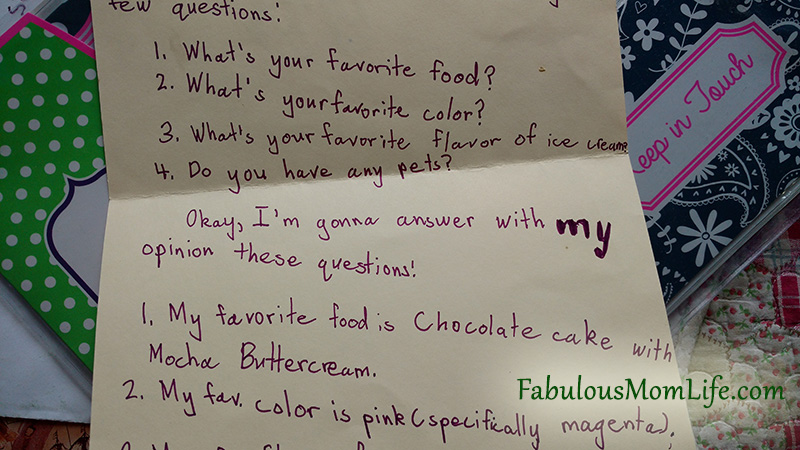 few questions!
1. What's your favorite food?
2. What's your favorite color?
3. What's your favorite flavor of ice cream?
4. Do you have any pets?
Okay, I'm gonna answer with my
opinion these questions!
1. My favorite food is Chocolate cake with
Mocha Buttercream.
2. My fav. color is pink (specifically magenta).
Keep in Touch
FabulousMomLife.com